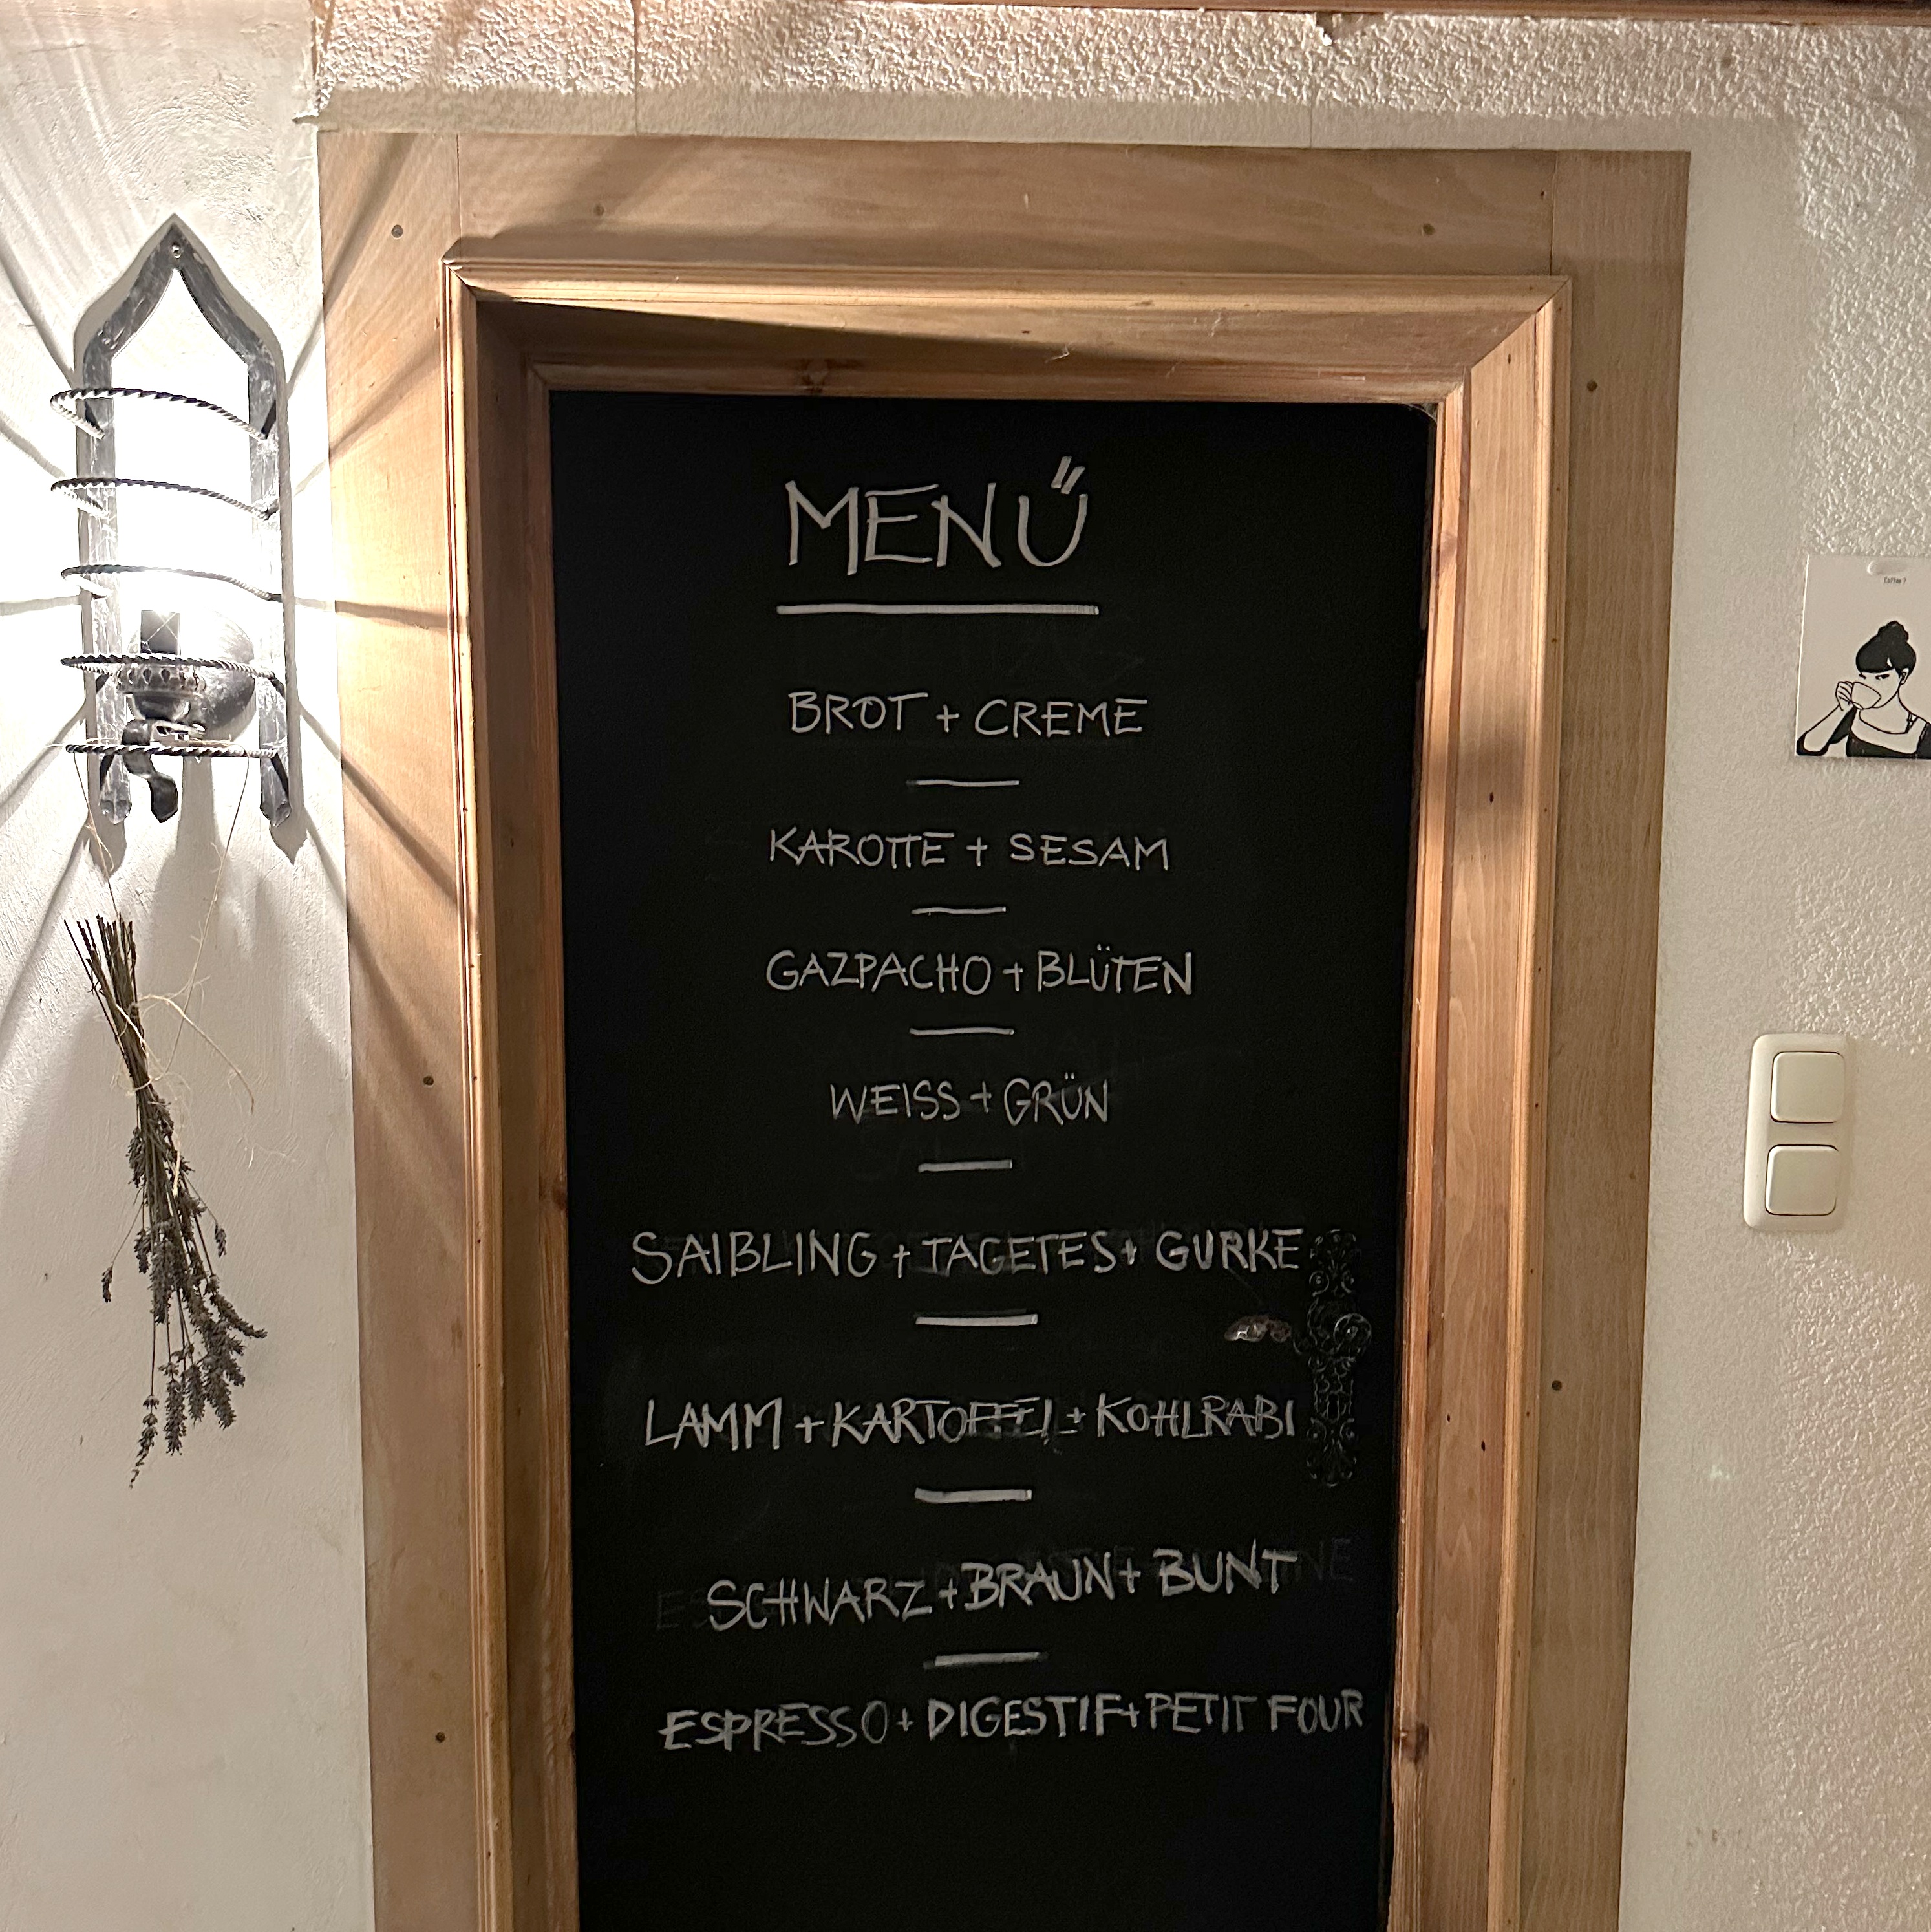 MENÜ
BROT + CREME
KAROTTE + SESAM
GAZPACHO + BLÜTEN
WEISS + GRÜN
SAIBLING + TAGETES + GURKE
LAMM + KARTOFFEL + KOHLRABI
SCHWARZ + BRAUN + BUNT
ESPRESSO + DIGESTIF + PETIT FOUR
Coffee?